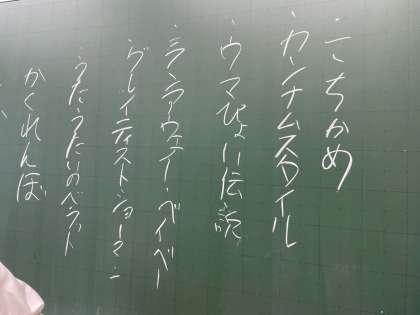 ・こちかめ
・カンナムスタイル
・ウマぴょい伝説
・ランアウェイ・ベイベー
・グレイティストショーマン
・うたうたいのバラッド
かくれんぼ